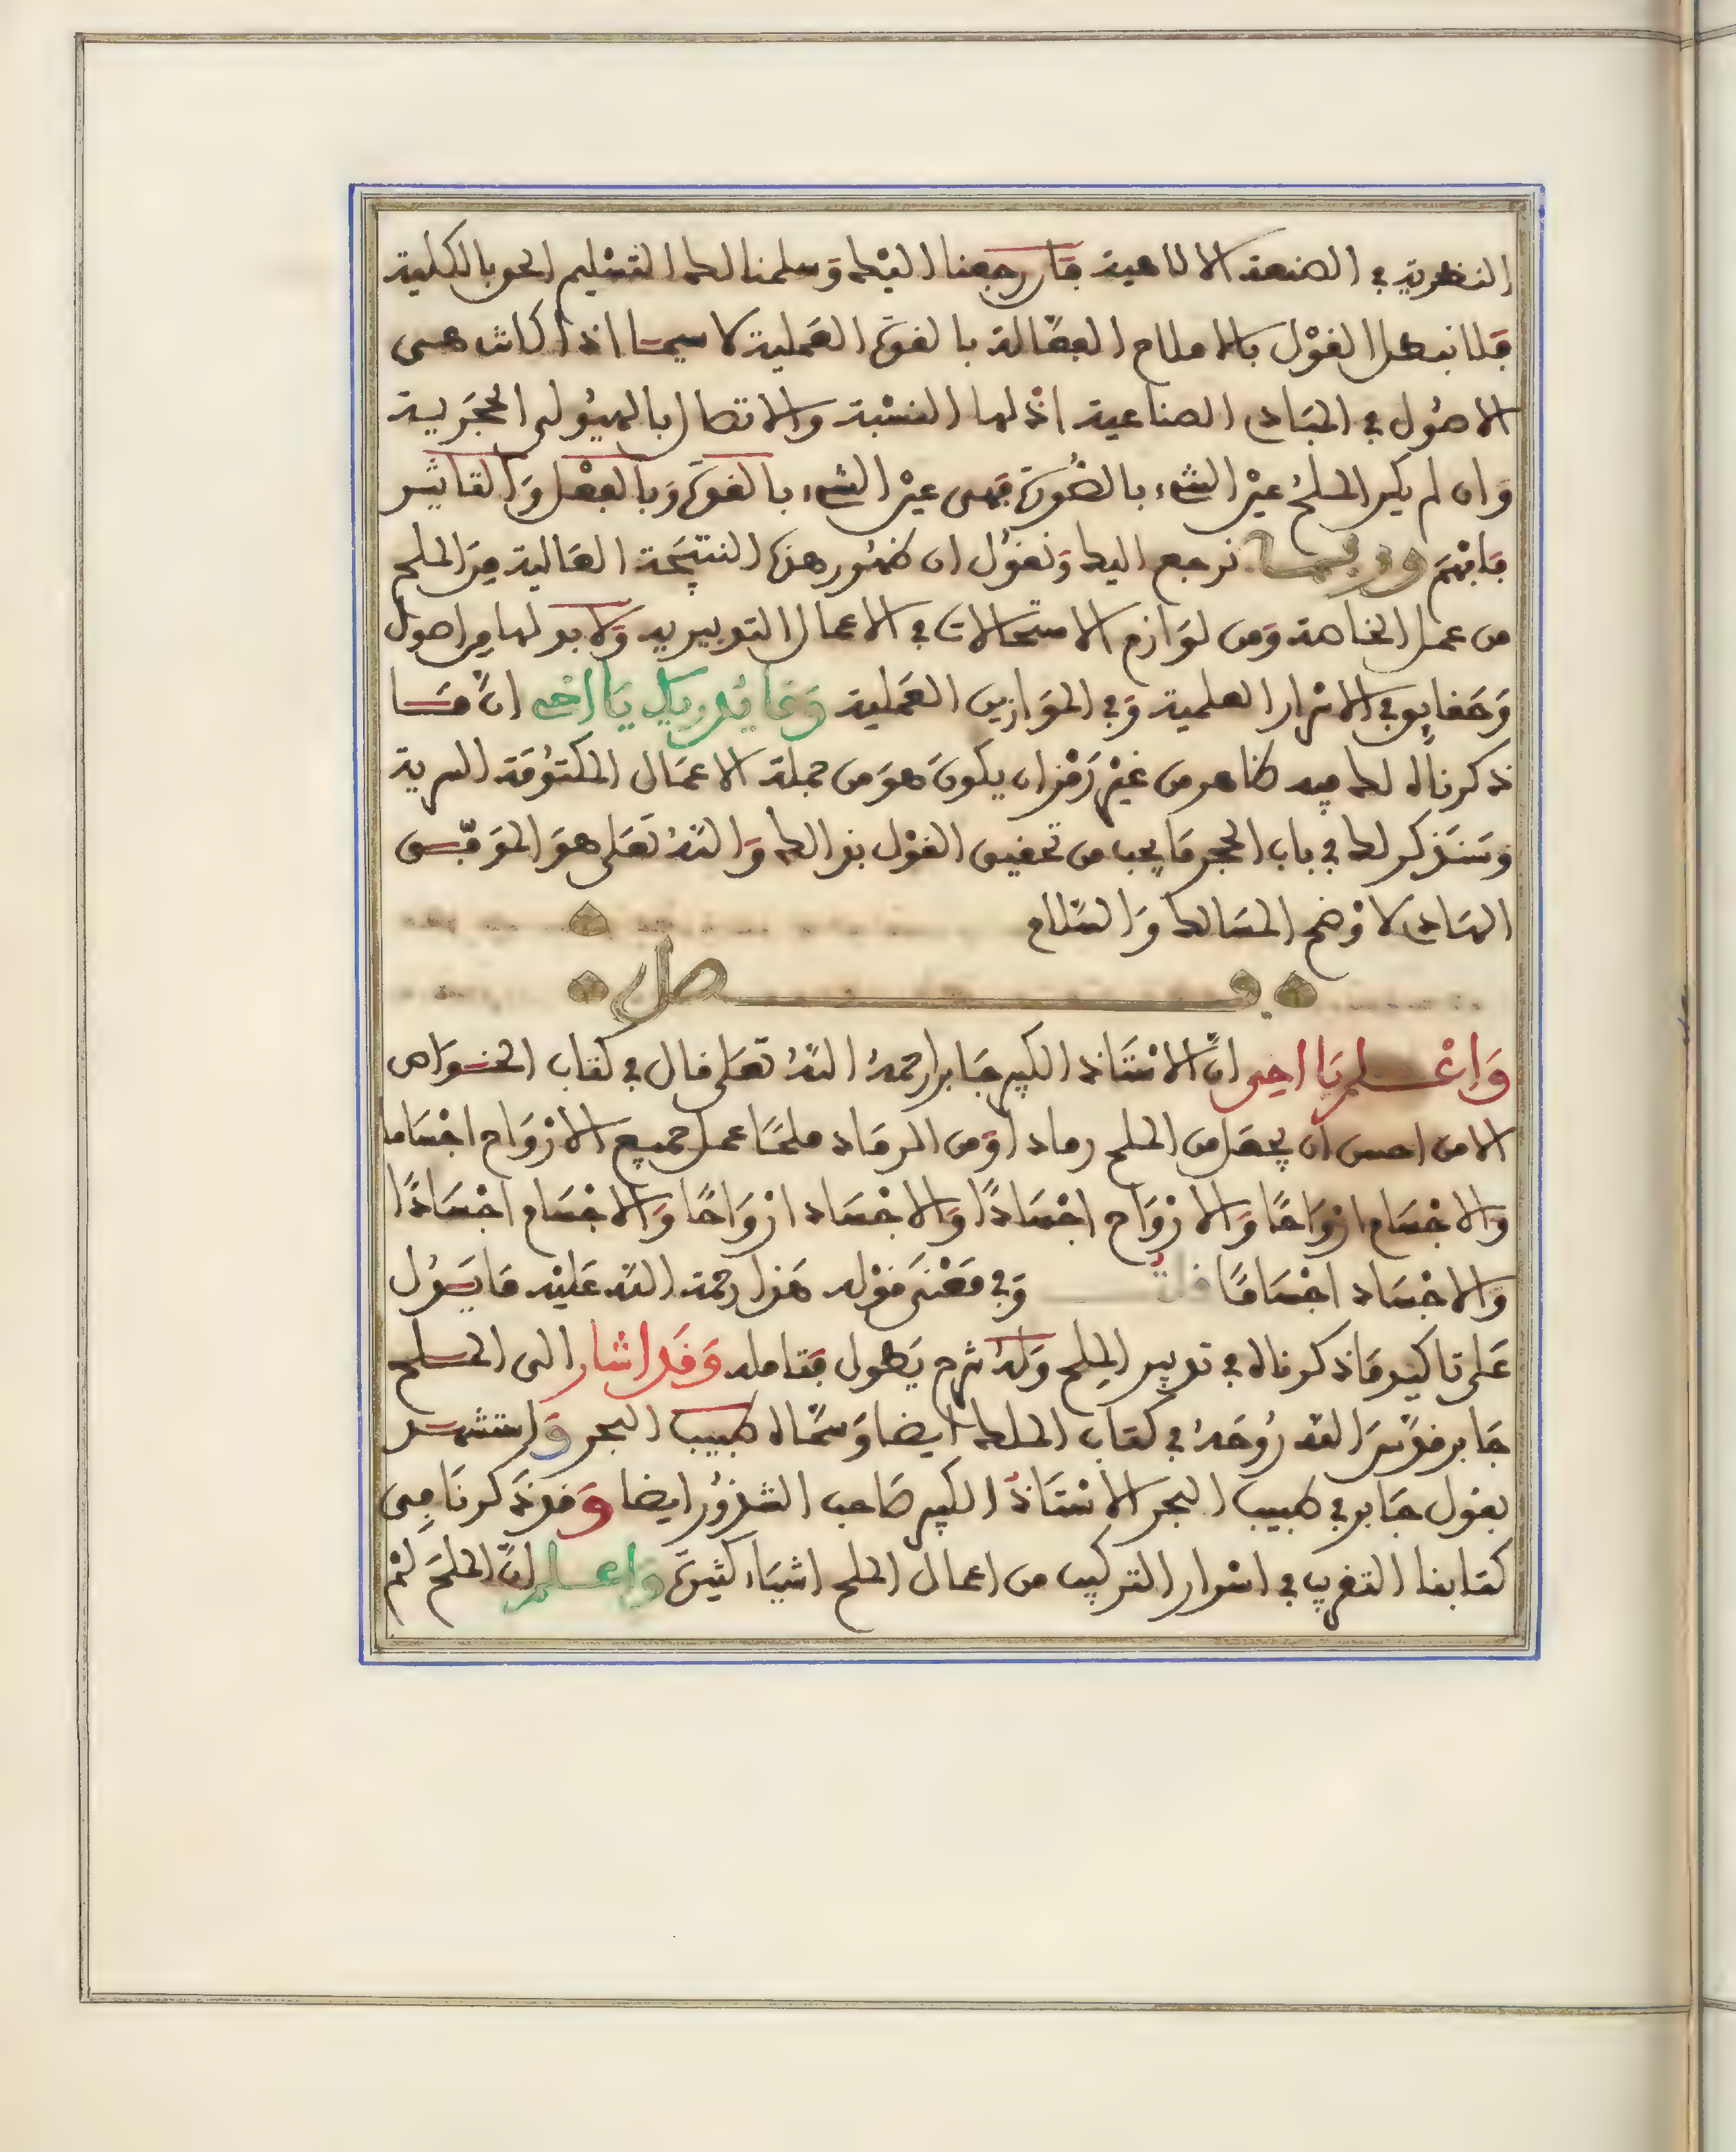 النظرية في الصنعة الالاهية فان رجعنا اليك وسلمنا لك التسليم الحق بالكلية
فلا نبطل القول بالاملاح الفعّالة بالقوة العملية لا سيما اذا كانت هي
الاصُول في المبَادي الصناعية اذ لها النسْبة والاتصال بالهيُولى الحجَرية
وَان لم يكن الملحُ عيْن الشيء بالصُّورَة فهى عيْن الشيء بالقوَّة وَبالفعْل وَالتاثير
فافهَم ورُبما نرجع اليك وَنقوُل ان ظهُور هذه النتيْجَة العَالية مِنَ الملح
من عمل الخاصة وَمن لوَازم الاستحالات في الاعمال التدبيرية وَلا بد لها من اصول
وَحقايق في الاسْرار العلمية وَفي المَوَازين العَملية وَمَا يُدريك يَا اخى انَّ مَا
ذكرناه لك فيه ظاهر من غيْر رَمْز ان يكونَ هوَ من جملة الاعمَال المكتوُمَة السرية
وَسَنَذكر لك في باب الحجر مَا يجب من تحقيق القوْل بذالك وَاللهُ تعَلى هوَ الموَفّق
الهَادي لاوْضح المسَالك وَالسَّلام
فصل
وَاعْلم يَا اخى انَّ الاسْتَاذ الكبير جَابرا رحمهُ اللهُ تعَلى قال في كتاب الخوَاص
الا من احسن ان يجعَل من الملح رمادا وَمن الرمَاد ملحًا عمل جميع الارْوَاح اجْسَاما
وَالاجْسَام ارْوَاحًا وَالارْوَاح اجْسَادًا وَالاجْسَاد ارْوَاحًا وَالاجْسَام اجْسَادًا
وَالاجْسَاد اجْسَامًا قلتُ وَفي مَعْنَى قوْله هَذا رحمة الله عَليْه مَا يَدُل
عَلى تاكيد مَا ذكرناه في تدبير الملح وَلهُ شرح يَطول فتامله وَقَد اشار الى الملح
جَابر قدَّسَ الله رُوحَهُ في كتَاب الملك ايضا وَسمَّاه طبيب البحر وَاستشهد
بقول جَابر في طبيب البحر الاسْتَاذ الكبير صَاحب الشذوُر ايضا وَقد ذكرنَا في
كتَابنا التقريب في اسْرار التركيب من اعمال الملح اشيَاء كثيرَة وَاعلم انَّ الملحَ لمْ